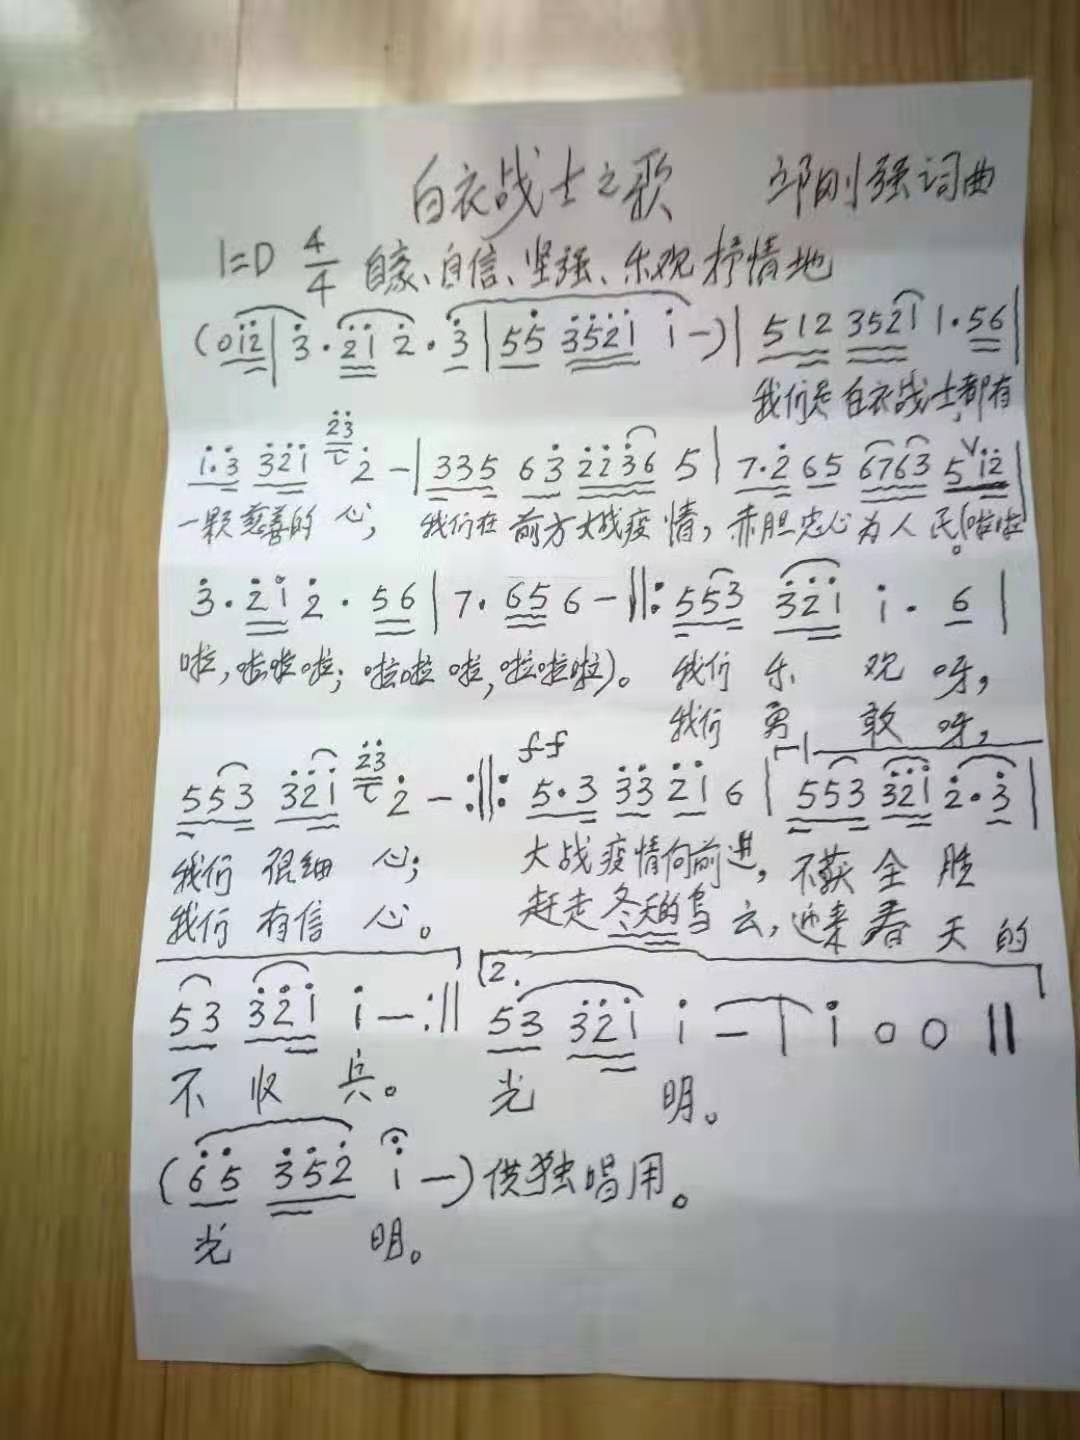 白衣战士之歌 邹刚强词曲
1=D 4/4 自豪、自信、坚强、乐观 抒情地
(0i̇2̇|3̇·2̇i̇2̇·3̇|55̇ 3̇5̇2̇i̇ i̇-)|512 352i 1·56|
我们是 白衣战士都有
i̇·3̇ 3̇2̇i̇ 2̇3̇ 2̇-|335 63̇ 2̇2̇3̇6 5|7·2̇ 65 6763̇ 5 V i̇2̇|
一颗慈善的 心, 我们在 前方大战疫 情, 赤胆忠心为人民。(啦啦
3̇·2̇i̇2̇·56|7·656-‖:553 3̇2̇i̇ i̇·6|
啦,啦啦啦;啦啦 啦,啦啦啦)。 我们 乐 观 呀,
我们 勇 敢 呀,
553 3̇2̇i̇ 2̇3̇ 2̇-:‖: ff 5·3 3̇3̇ 2̇i̇ 6|1 553 3̇2̇i̇ 2̇·3̇|
我们 很细 心; 大战疫情向前进, 不获全胜
我们 有信 心。 赶走冬天的乌云, 迎来春天的
53 3̇2̇i̇ i̇-:‖ 2. 53 3̇2̇i̇ i̇-|i̇ 0 0‖
不 收 兵。 光 明。
(6̇5̇ 3̇5̇2̇ i̇-)供独唱用。
光 明。